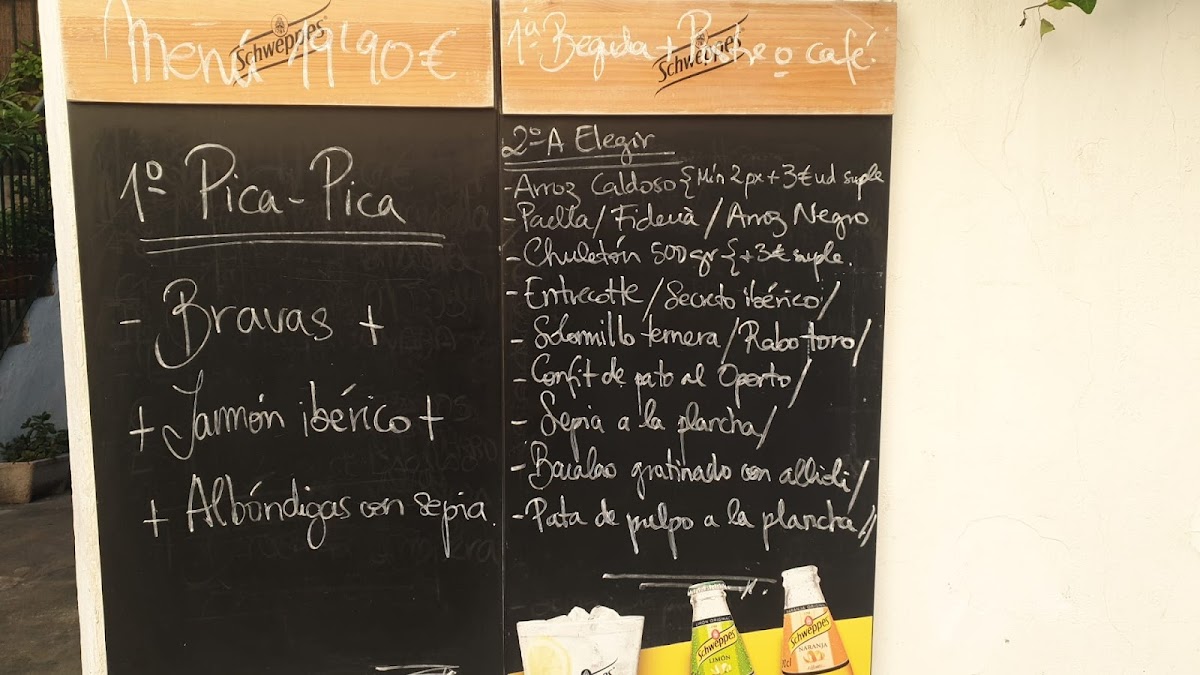 Menú 19'90€
Schweppes
1ª Beguda + Postre o café.
Schweppes
1º Pica-Pica
- Bravas +
+ Jammón ibérico +
+ Albóndigas con sepia.
2º A Elegir
- Arroz Caldoso { Mín 2px + 3€ ud suple
- Paella / Fideuà / Arroz Negro
- Chuletón 500gr { + 3€ suple.
- Entrecotte / Secreto ibérico /
- Solomillo ternera / Rabo toro /
- Confit de pato al Oporto /
- Sepia a la plancha /
- Bacalao gratinado con allioli /
- Pata de pulpo a la plancha //
Schweppes
LIMÓN
Schweppes
NARANJA